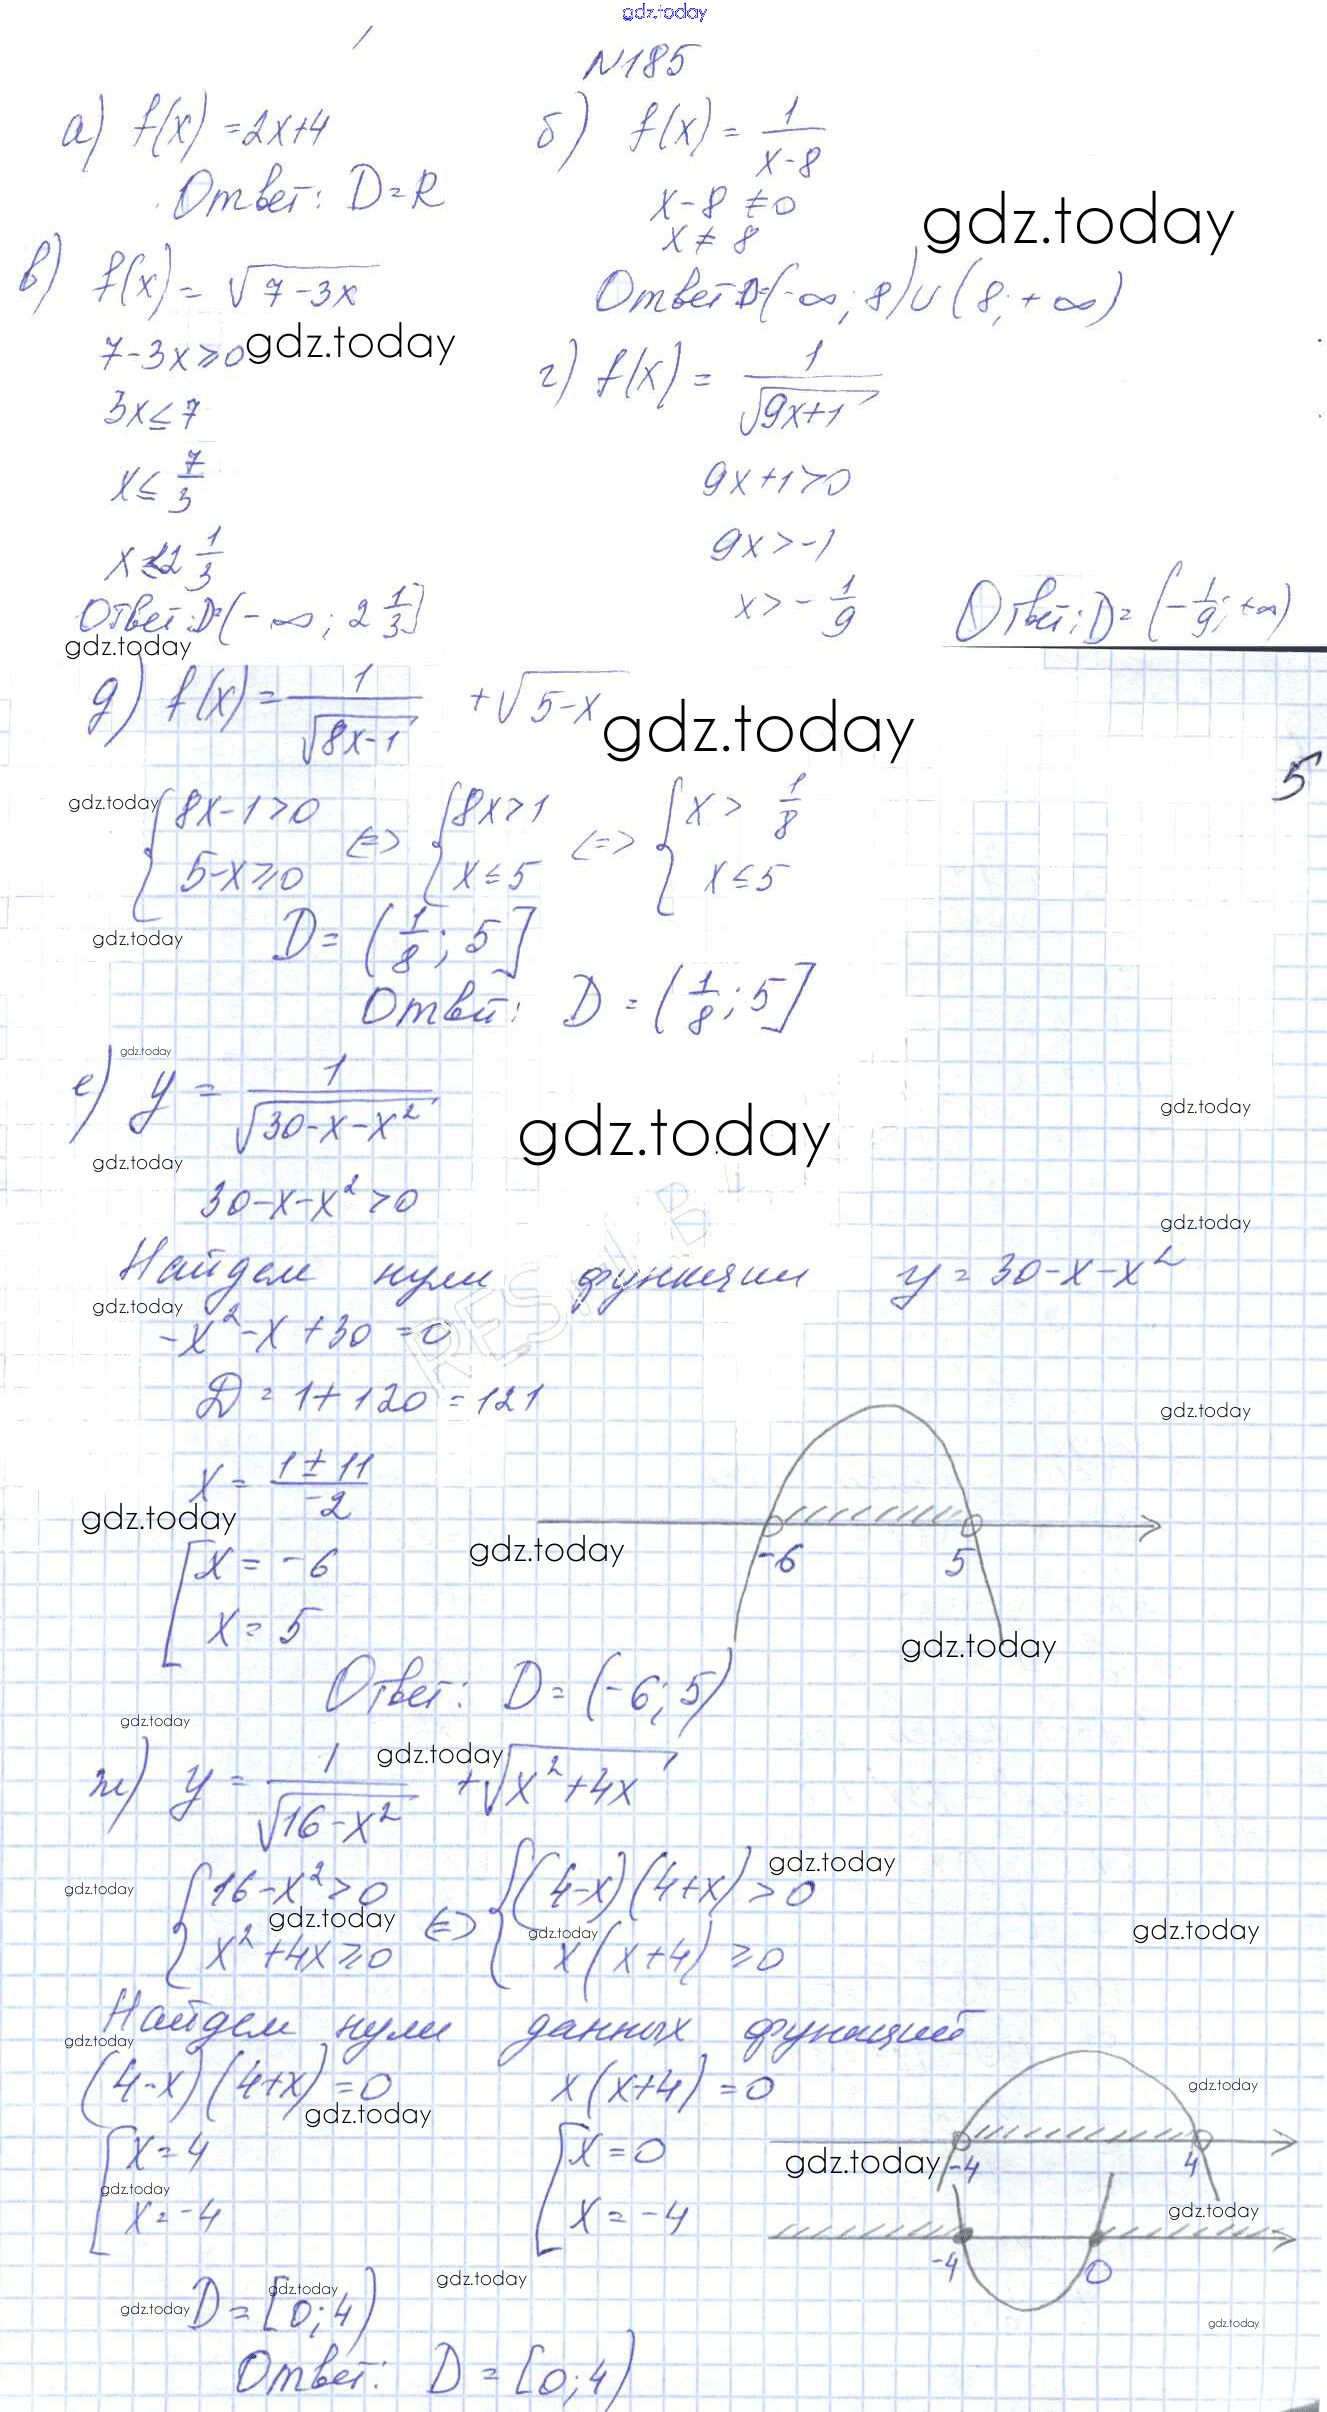 gdz.today
N185
а) f(x) = 2x+4
Ответ: D=R
б) f(x) = 1/(x-8)
x-8 ≠ 0
x ≠ 8
gdz.today
Ответ D=(-∞; 8)∪(8; +∞)
в) f(x) = √(7-3x)
7-3x ≥ 0
gdz.today
3x ≤ 7
x ≤ 7/3
x ≤ 2 1/3
Ответ: D=(-∞; 2 1/3]
gdz.today
г) f(x) = 1/√(9x+1)
9x+1>0
9x>-1
x > -1/9
Ответ: D= (-1/9; +∞)
д) f(x) = 1/√(8x-1) + √(5-x)
gdz.today
5
gdz.today
{8x-1>0 <=> {8x>1 <=> {x > 1/8
{5-x≥0 {x≤5 {x≤5
gdz.today
D= (1/8; 5]
Ответ: D = (1/8; 5]
gdz.today
е) y = 1/√(30-x-x²)
gdz.today
gdz.today
gdz.today
30-x-x²>0
gdz.today
Найдем нули функции y = 30-x-x²
gdz.today
-x²-x+30=0
D = 1+120=121
gdz.today
x = (1±11)/-2
gdz.today
gdz.today
[x = -6
[x = 5
-6 5
gdz.today
Ответ: D = (-6; 5)
gdz.today
ж) y = 1/√(16-x²) + √(x²+4x)
gdz.today
gdz.today
gdz.today
{16-x²>0 <=> {(4-x)(4+x)>0
gdz.today
gdz.today
gdz.today
{x²+4x≥0 {x(x+4)≥0
Найдем нули данных функций
gdz.today
(4-x)(4+x)=0 x(x+4)=0
gdz.today
gdz.today
[x=4 [x=0
gdz.today
-4 4
gdz.today
gdz.today
[x=-4 [x=-4
-4 0
gdz.today
gdz.today
gdz.today
D=[0;4)
gdz.today
Ответ: D=[0;4)